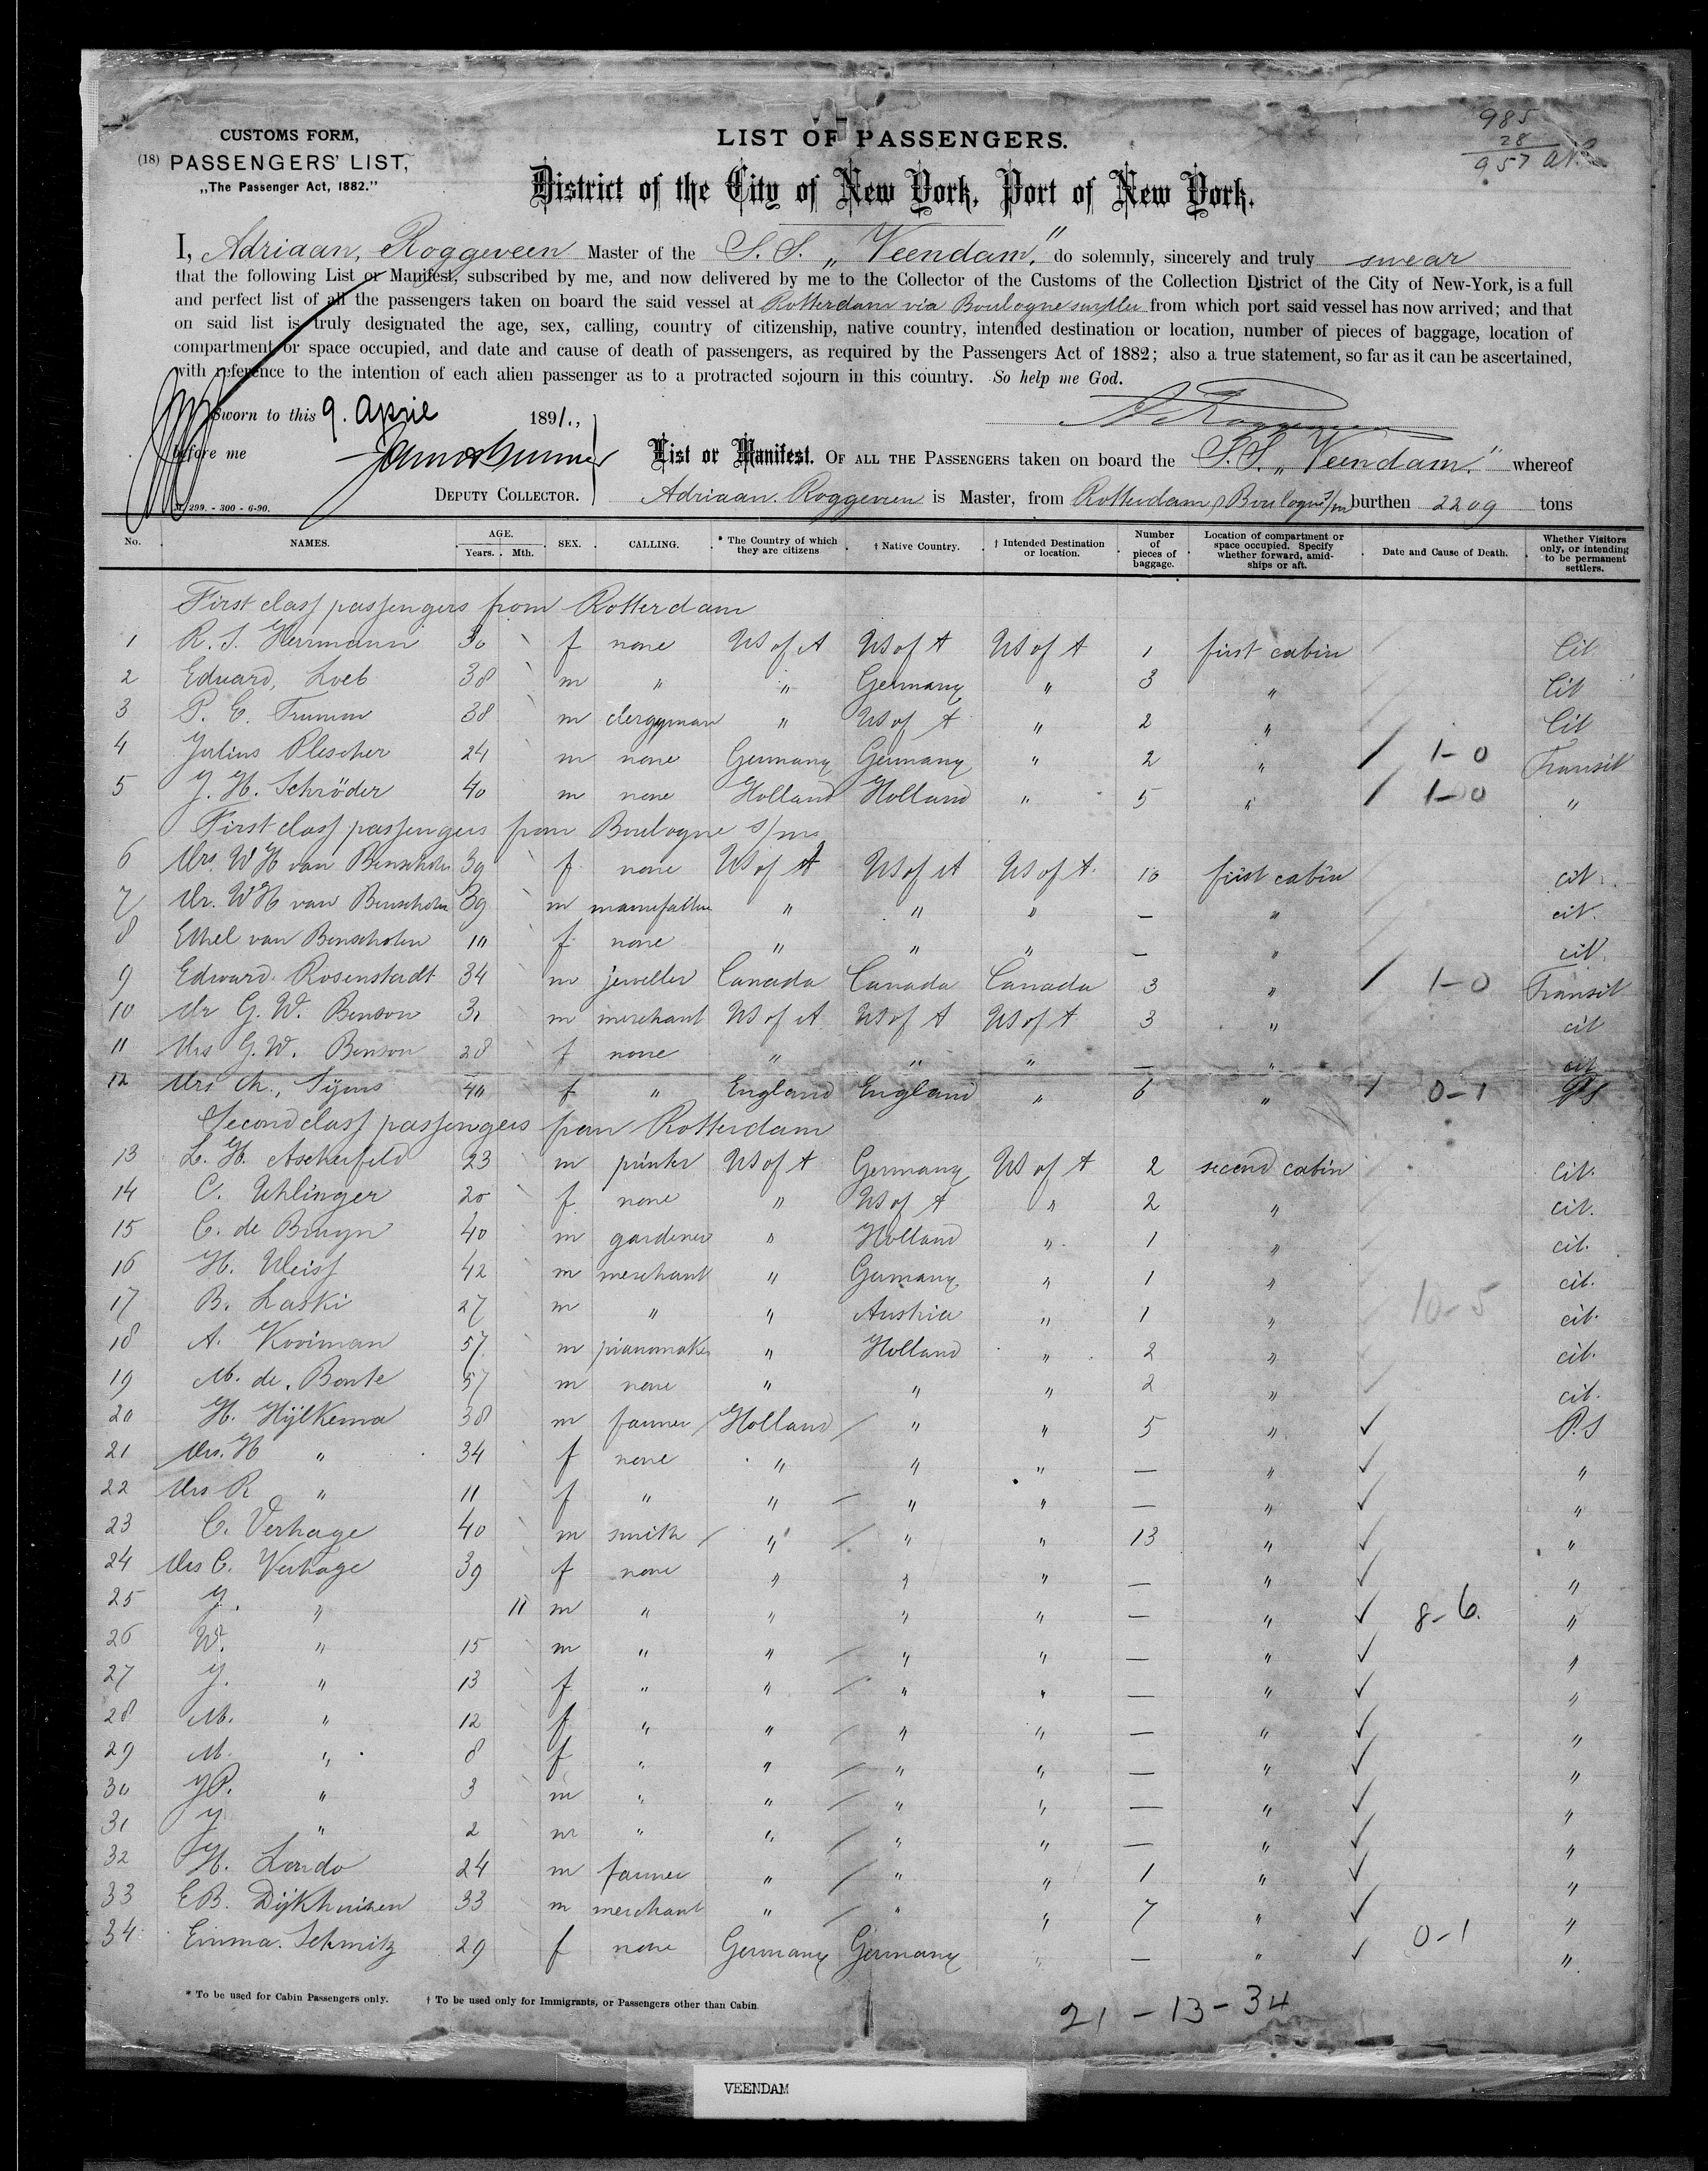 985
28
957
CUSTOMS FORM,
(18) PASSENGERS' LIST,
„The Passenger Act, 1882."
LIST OF PASSENGERS.
District of the City of New York, Port of New York.
I, Adriaan, Roggeveen Master of the S.S. „Veendam," do solemnly, sincerely and truly swear
that the following List or Manifest, subscribed by me, and now delivered by me to the Collector of the Customs of the Collection District of the City of New-York, is a full
and perfect list of all the passengers taken on board the said vessel at Rotterdam via Boulogne from which port said vessel has now arrived; and that
on said list is truly designated the age, sex, calling, country of citizenship, native country, intended destination or location, number of pieces of baggage, location of
compartment or space occupied, and date and cause of death of passengers, as required by the Passengers Act of 1882; also a true statement, so far as it can be ascertained,
with reference to the intention of each alien passenger as to a protracted sojourn in this country. So help me God.
Sworn to this 9. April 1891.,
A Roggeveen
before me
DEPUTY COLLECTOR.
List or Manifest. OF ALL THE PASSENGERS taken on board the S.S. „Veendam." whereof
Adriaan. Roggeveen is Master, from Rotterdam & Boulogne s/m burthen 2209 tons
299. - 300 - 6-90.
No. NAMES. AGE. Years. Mth. SEX. CALLING. * The Country of which they are citizens † Native Country. † Intended Destination or location. Number of pieces of baggage. Location of compartment or space occupied. Specify whether forward, amidships or aft. Date and Cause of Death. Whether Visitors only, or intending to be permanent settlers.
First class passengers from Rotterdam
1 R. S. Herrmann 30 f none US of A US of A US of A 1 first cabin Cit
2 Eduard, Loeb 38 m " " Germany " 3 " Cit
3 P. C. 38 m clergyman " US of A " 2 " Cit
4 Julius Plescher 24 m none Germany Germany " 2 " / 1-0 Transit
5 J. H. Schröder 40 m none Holland Holland " 5 " / 1-0 "
First class passengers from Boulogne s/m
6 Mrs. W H van Benschoten 39 f none US of A US of A US of A. 10 first cabin cit.
7 Mr. W H van Benschoten 39 m " " " — " cit.
8 Ethel van Benschoten 10 f none " " " — " cit.
9 Edward Rosenstadt 34 m jeweller Canada Canada Canada 3 " / 1-0 Transit
10 Mr G. W. Benson 31 m merchant US of A US of A US of A 3 " cit
11 Mrs G. W. Benson 28 f none " " " — " cit
12 Mrs Ch. Syms 40 f " England England " 6 " / 0-1 P.S
Second class passengers from Rotterdam
13 L. H. Ascherfeld 23 m printer US of A Germany US of A 2 second cabin cit.
14 C. Uhlinger 20 f none " US of A " 2 " cit.
15 C. de Bruyn 40 m gardener " Holland " 1 " cit.
16 H. Weiss 42 m merchant " Germany " 1 " cit.
17 B. Laski 27 m " " Austria " 1 " 10-5 cit.
18 A. Kooiman 57 m pianomaker " Holland " 2 " cit.
19 M. de Bonte 57 m none " " " 2 " cit.
20 H. Hijlkema 38 m farmer Holland " " 5 " ✓ P.S
21 Mrs. H " 34 f none " " " — " ✓ "
22 Mrs R " 11 f " " " " — " ✓ "
23 C. Verhage 40 m smith " " " 13 " ✓ "
24 Mrs C. Verhage 39 f none " " " — " ✓ "
25 J. " 11 m " " " " — " ✓ 8-6. "
26 W. " 15 m " " " " — " ✓ "
27 J. " 13 f " " " " — " ✓ "
28 M. " 12 f " " " " — " ✓ "
29 M. " 8 f " " " " — " ✓ "
30 J P. " 3 m " " " " — " ✓ "
31 J " 2 m " " " " — " ✓ "
32 H. Londo 24 m farmer " " " 1 " ✓ "
33 E B. Dijkhuizen 33 m merchant " " " 7 " ✓ "
34 Emma. Schmitz 29 f none Germany Germany " — " ✓ 0-1 "
* To be used for Cabin Passengers only. † To be used only for Immigrants, or Passengers other than Cabin.
21 - 13 - 34
VEENDAM